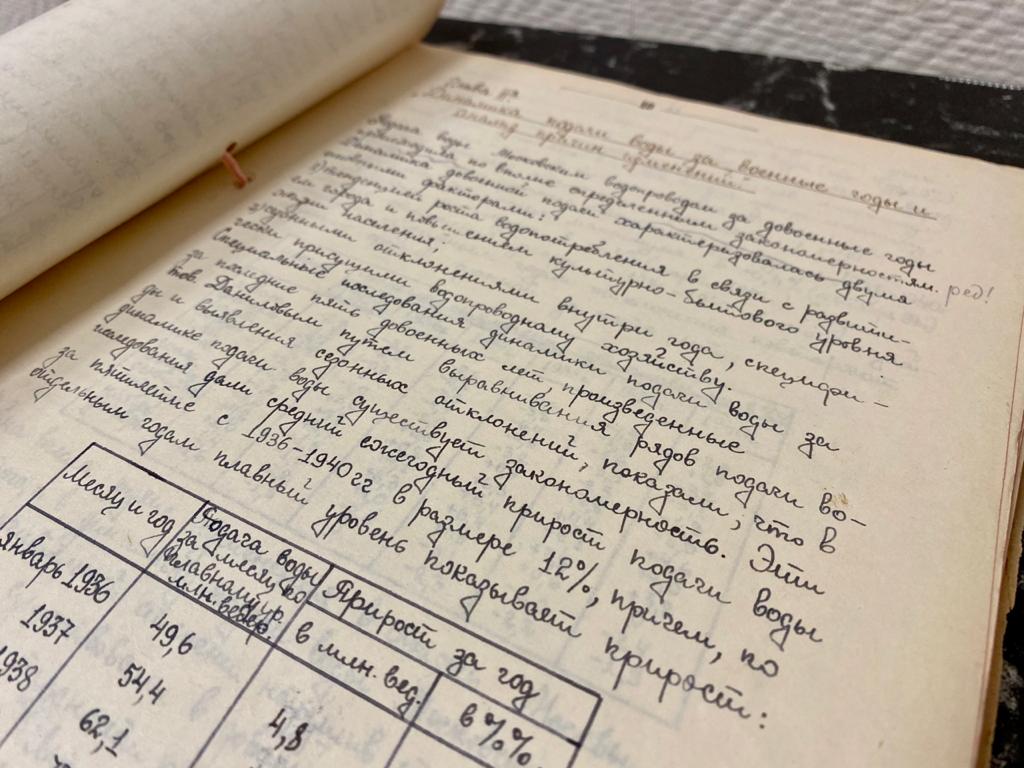 Глава
Динамика подачи воды за военные годы и
анализ причин изменений.
Подача воды Московским водопроводам за довоенные годы
по вполне определенным закономерностям. ред!
Динамика довоенной подачи характеризовалась двумя
основными факторами:
1) тенденцией роста водопотребления в связи с развити-
ем города и повышением культурно-бытового уровня
жизни населения;
2) сезонными отклонениями внутри года, специфи-
чески присущими водопроводному хозяйству.
Специальные исследования динамики подачи воды за
за последние пять довоенных лет, произведенные
тов. Даниловым путем выравнивания рядов подачи во-
ды и выявления сезонных отклонений, показали, что в
динамике подачи воды существует закономерность. Эти
исследования дали средний ежегодный прирост подачи воды
за пятилетие с 1936-1940 гг в размере 12%, причем, по
отдельным годам плавный уровень показывает прирост:
Месяц и год
Подача воды
за месяц по
плавному ур.
млн. ведер.
Прирост за год
в млн. вед.
в %%
январь 1936
49,6
1937
54,4
4,8
1938
62,1